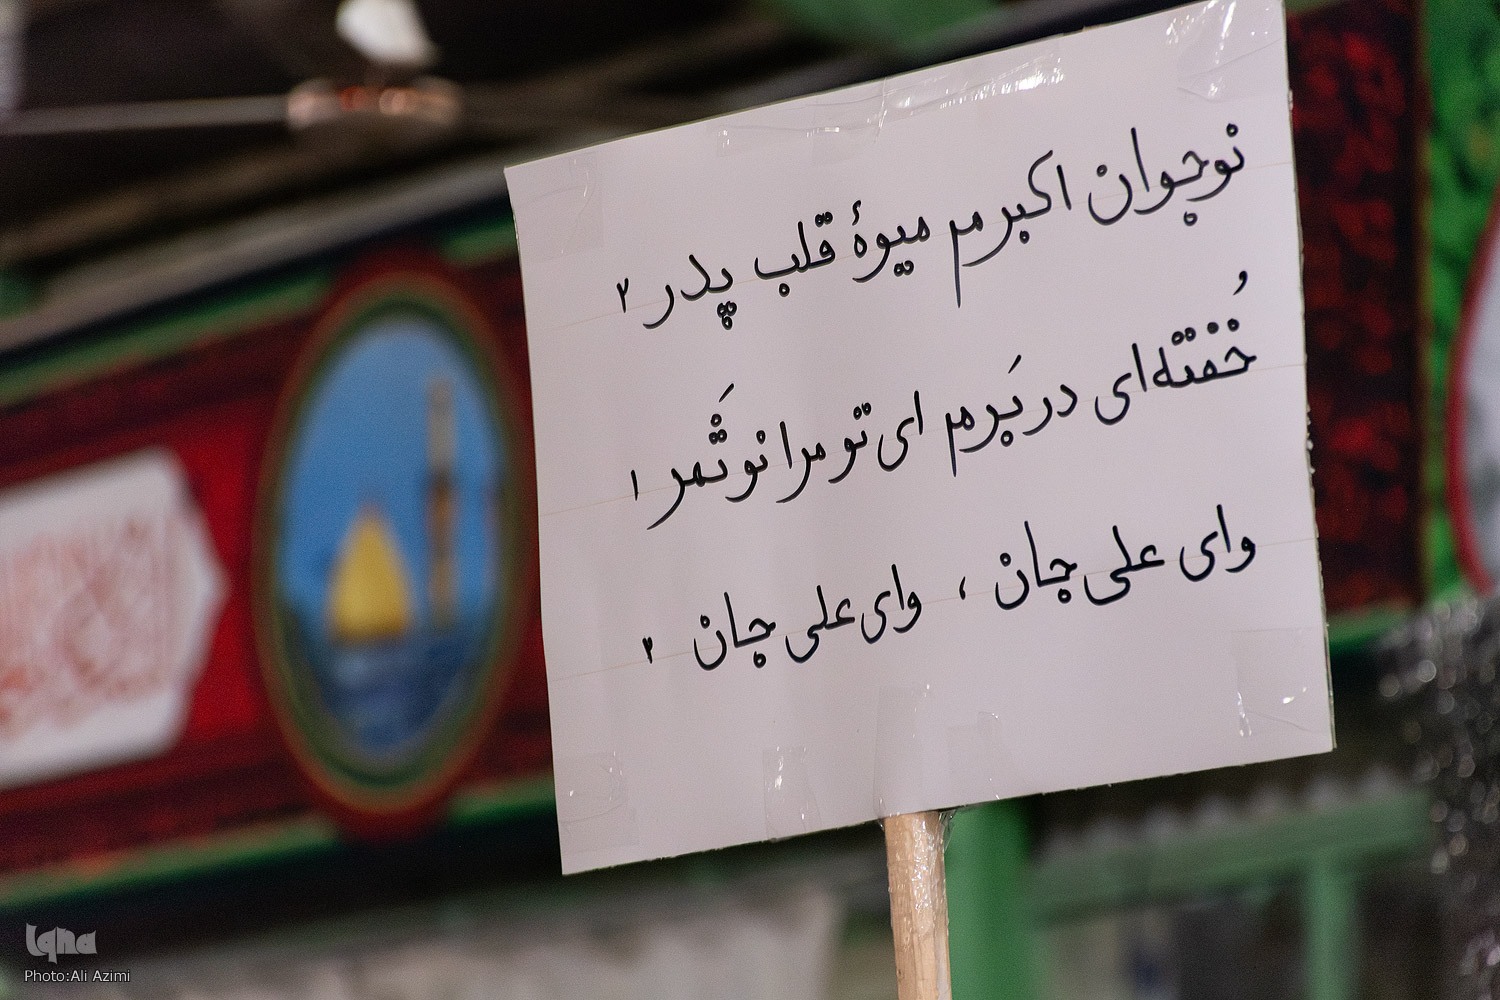 نوجوان اکبرم میوهٔ قلب پدر ۲
خُفته‌ای در بَرم ای تو مرا نوثَمر ۱
وای علی جان ، وای علی جان ۲
Iqna
Photo:Ali Azimi